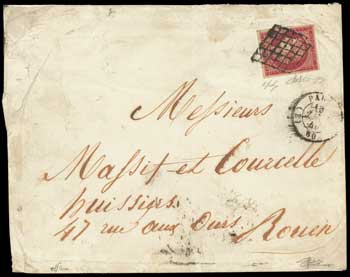 PA
Messieurs
Massif et Courcelle
huissiers
47 rue aux Ours Rouen